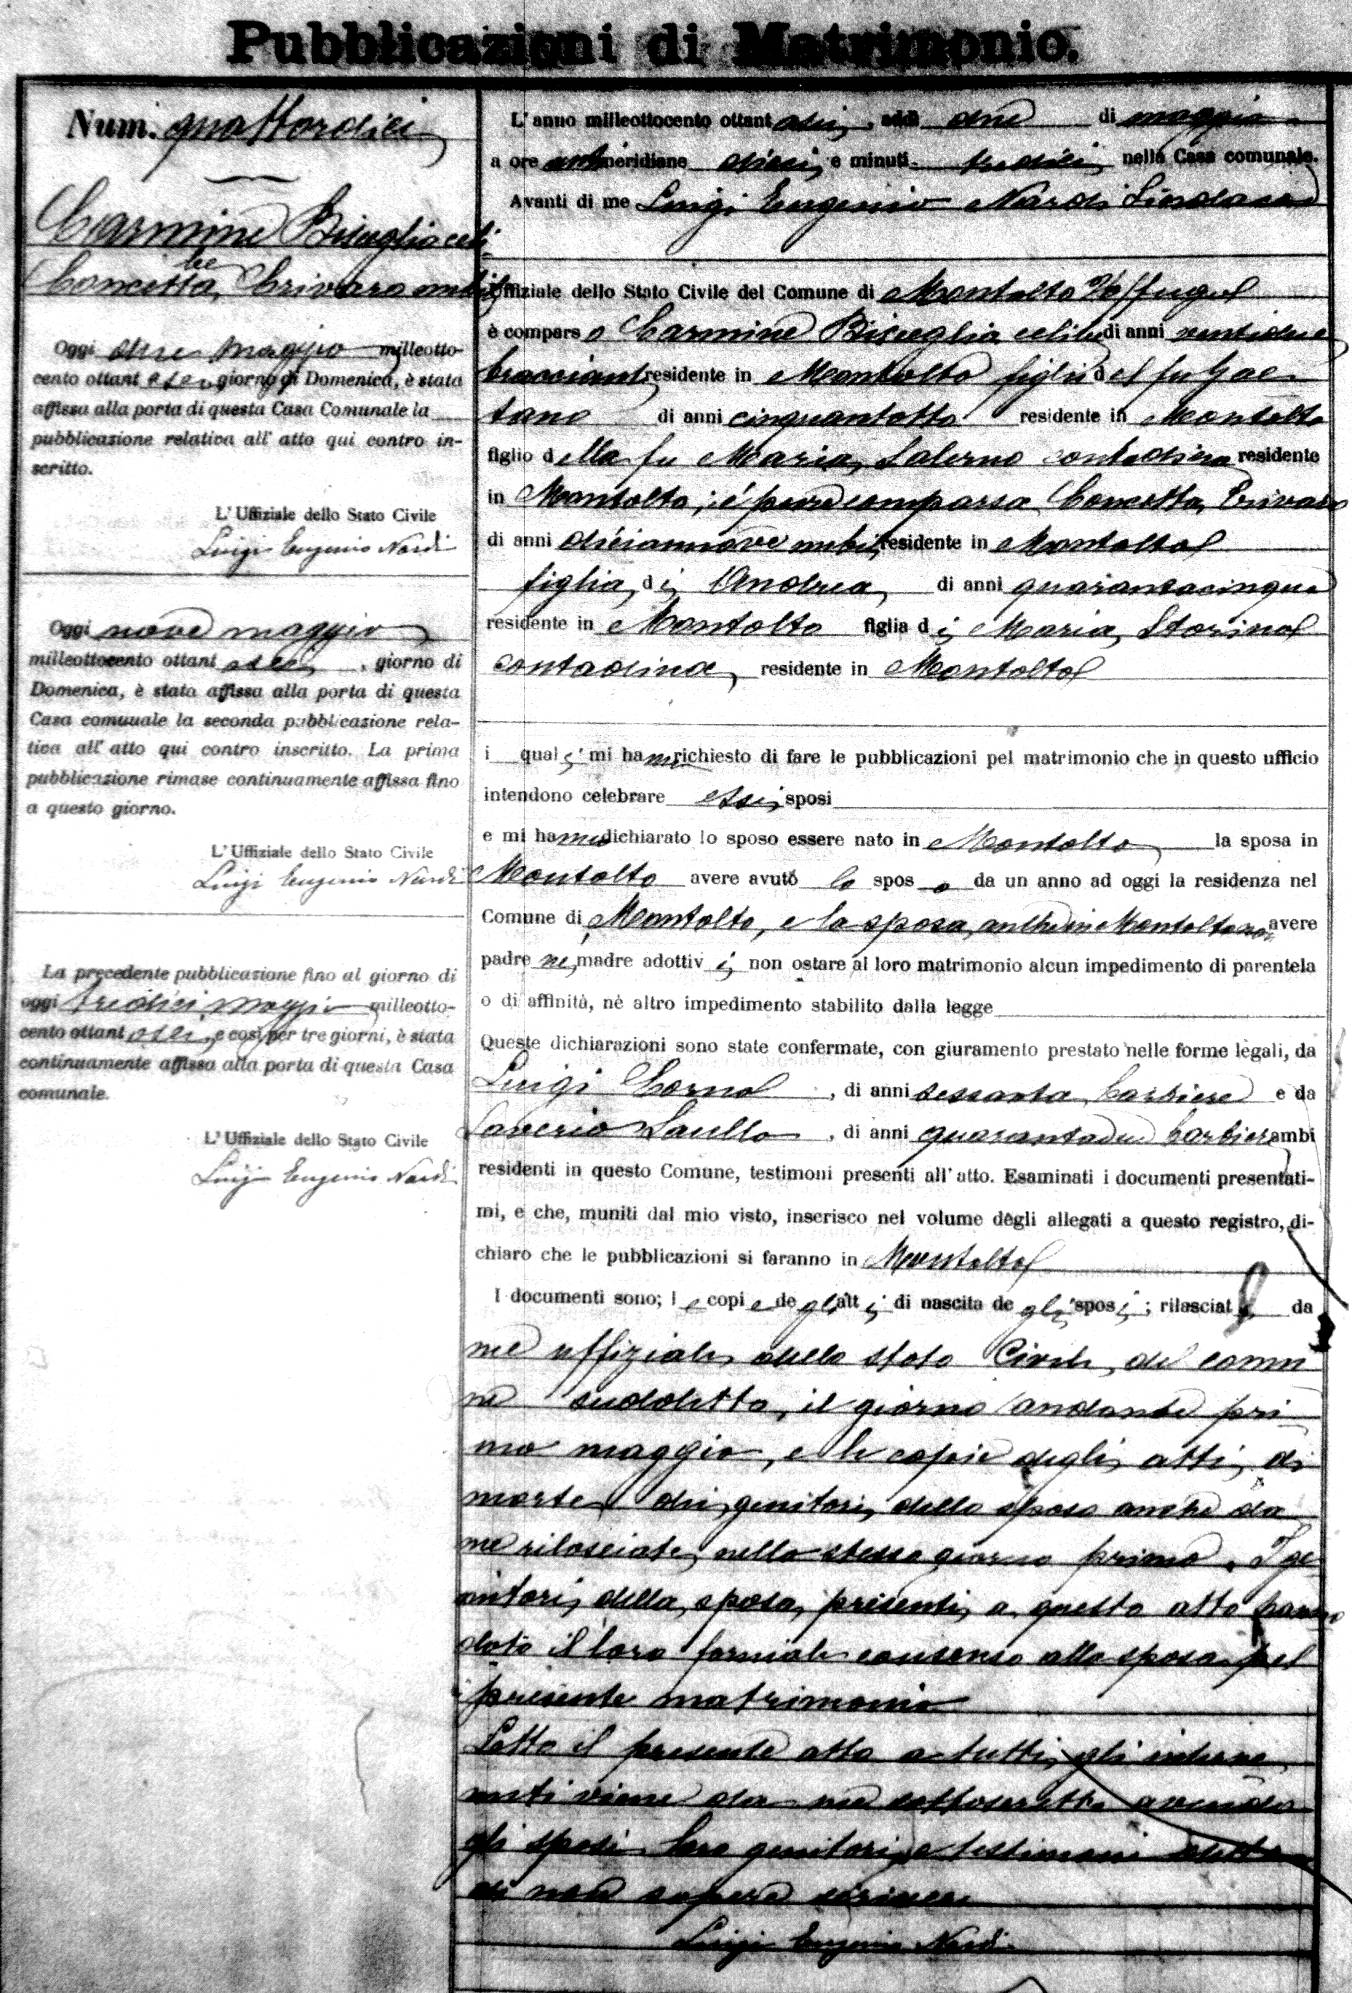 Pubblicazioni di Matrimonio.
Num. quattordici
Carmine Bisceglia celi-
be
Concetta Crivaro nubile
Oggi due maggio milleotto-
cento ottantasei, giorno di Domenica, è stata
affissa alla porta di questa Casa Comunale la
pubblicazione relativa all' atto qui contro in-
scritto.
L' Uffiziale dello Stato Civile
Luigi Eugenio Nardi
Oggi nove maggio
milleottocento ottantasei, giorno di
Domenica, è stata affissa alla porta di questa
Casa comunale la seconda pubblicazione rela-
tiva all' atto qui contro inscritto. La prima
pubblicazione rimase continuamente affissa fino
a questo giorno.
L' Uffiziale dello Stato Civile
Luigi Eugenio Nardi
La precedente pubblicazione fino al giorno di
oggi tredici maggio milleotto-
cento ottantasei, e così per tre giorni, è stata
continuamente affissa alla porta di questa Casa
comunale.
L' Uffiziale dello Stato Civile
Luigi Eugenio Nardi
L' anno milleottocento ottantasei, addì due di maggio
a ore antimeridiane dieci e minuti tredici, nella Casa comunale.
Avanti di me Luigi Eugenio Nardi Sindaco
Uffiziale dello Stato Civile del Comune di Montalto Uffugo
è comparso Carmine Bisceglia celibe di anni ventidue
bracciante residente in Montalto figlio del fu Gae
tano di anni cinquantotto residente in Montalto
figlio della fu Maria Salerno contadina residente
in Montalto; è pure comparsa Concetta Crivaro
di anni diciannove nubile residente in Montalto
figlia di Andrea di anni quarantacinque
residente in Montalto figlia di Maria Storino
contadina residente in Montalto
i quali mi hanno richiesto di fare le pubblicazioni pel matrimonio che in questo ufficio
intendono celebrare essi sposi
e mi hanno dichiarato lo sposo essere nato in Montalto la sposa in
Montalto avere avuto lo sposo da un anno ad oggi la residenza nel
Comune di Montalto, e la sposa anche in Montalto non avere
padre nè madre adottivi, non ostare al loro matrimonio alcun impedimento di parentela
o di affinità, nè altro impedimento stabilito dalla legge
Queste dichiarazioni sono state confermate, con giuramento prestato nelle forme legali, da
Luigi , di anni sessanta barbiere e da
Saverio , di anni quarantadue barbiere ambi
residenti in questo Comune, testimoni presenti all' atto. Esaminati i documenti presentati-
mi, e che, muniti dal mio visto, inserisco nel volume degli allegati a questo registro, di-
chiaro che le pubblicazioni si faranno in Montalto
I documenti sono; le copie degli atti di nascita degli sposi; rilasciate da
me uffiziale dello stato Civile del comu
ne sudetto, il giorno andante pri
mo maggio, e le copie degli atti di
morte dei genitori dello sposo anche da
me rilasciate nello stesso giorno primo. I ge
nitori della sposa presenti a questo atto hanno
dato il loro formale consenso alla sposa pel
presente matrimonio
Letto il presente atto a tutti gli interve
nuti viene da me sottoscritto avendo
gli sposi loro genitori e testimoni detto
di non sapere scrivere
Luigi Eugenio Nardi